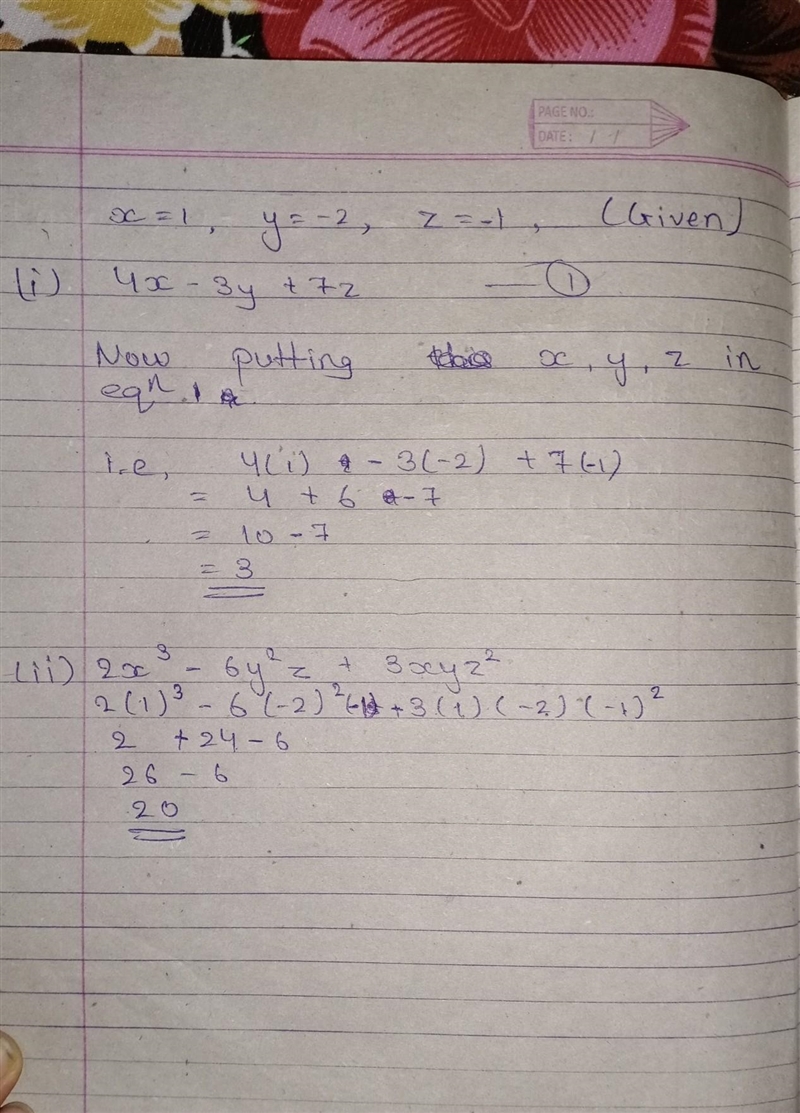 PAGE NO.:
DATE: / /
x = 1, y = -2, z = -1, (Given)
(i) 4x - 3y + 7z — ①
Now putting x, y, z in
eqⁿ. 1
i.e, 4(1) - 3(-2) + 7(-1)
= 4 + 6 - 7
= 10 - 7
= 3
(ii) 2x³ - 6y²z + 3xyz²
2(1)³ - 6(-2)²(-1) + 3(1)(-2)(-1)²
2 + 24 - 6
26 - 6
20